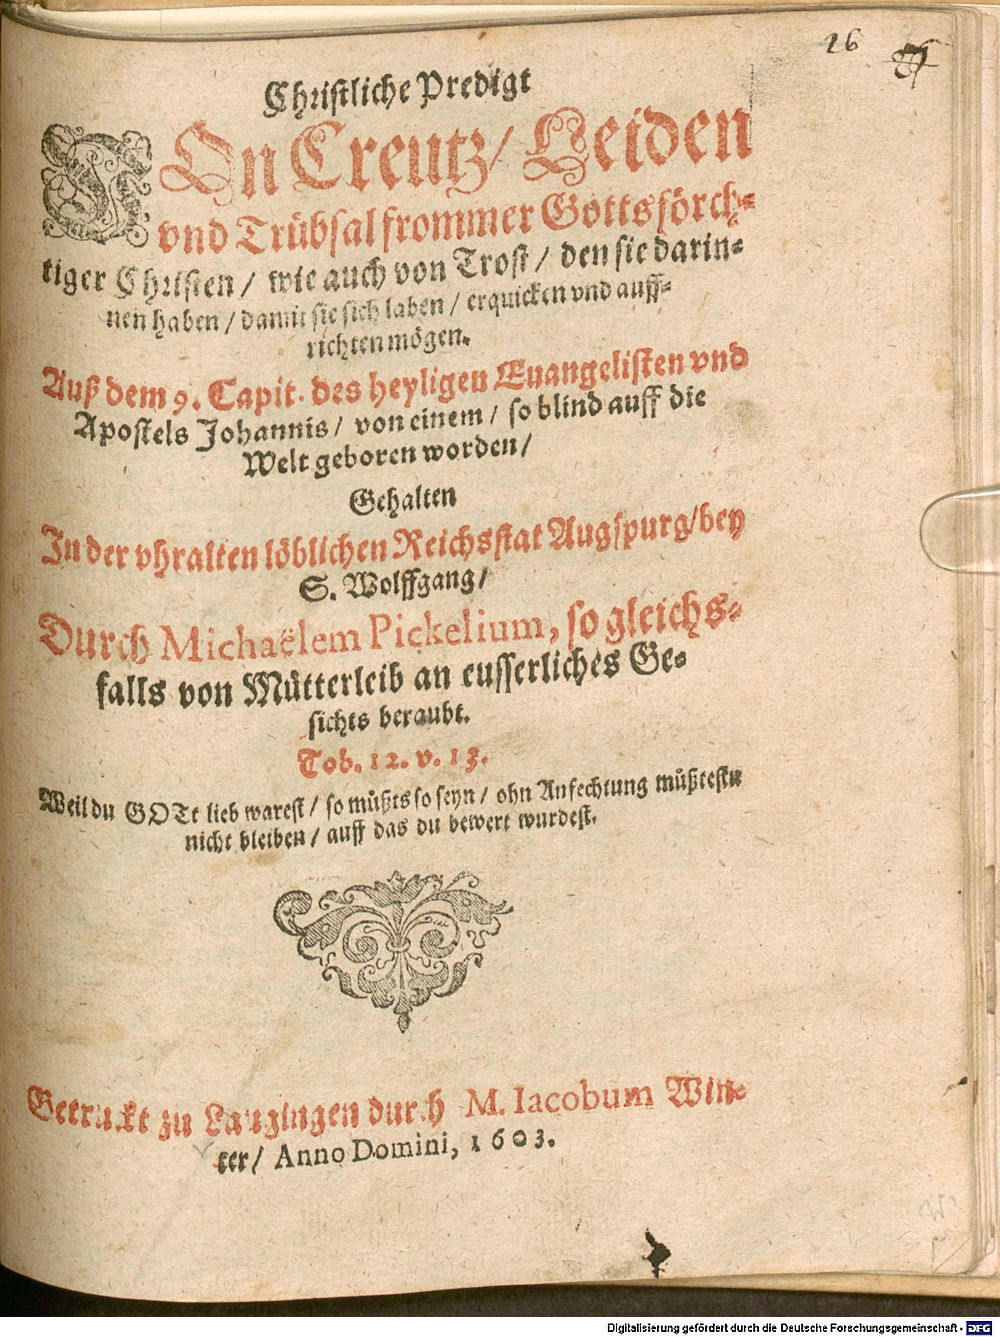 26
Christliche Predigt
VOn Creutz/ Leiden
vnd Trübsal frommer Gottsförch-
tiger Christen / wie auch von Trost / den sie darin-
nen haben / damit sie sich laben / erquicken vnd auff-
richten mögen.
Auß dem 9. Capit. des heyligen Euangelisten vnd
Apostels Johannis / von einem / so blind auff die
Welt geboren worden /
Gehalten
In der vhralten löblichen Reichsstat Augspurg / bey
S. Wolffgang /
Durch Michaëlem Pickelium, so gleichs-
falls von Mütterleib an eusserliches Ge-
sichts beraubt.
Tob. 12. v. 13.
Weil du GOTt lieb warest / so müßts so seyn / ohn Anfechtung müßtestu
nicht bleiben / auff das du bewert wurdest.
Getruckt zu Laugingen durch M. Iacobum Win-
ter / Anno Domini, 1603.
Digitalisierung gefördert durch die Deutsche Forschungsgemeinschaft - DFG